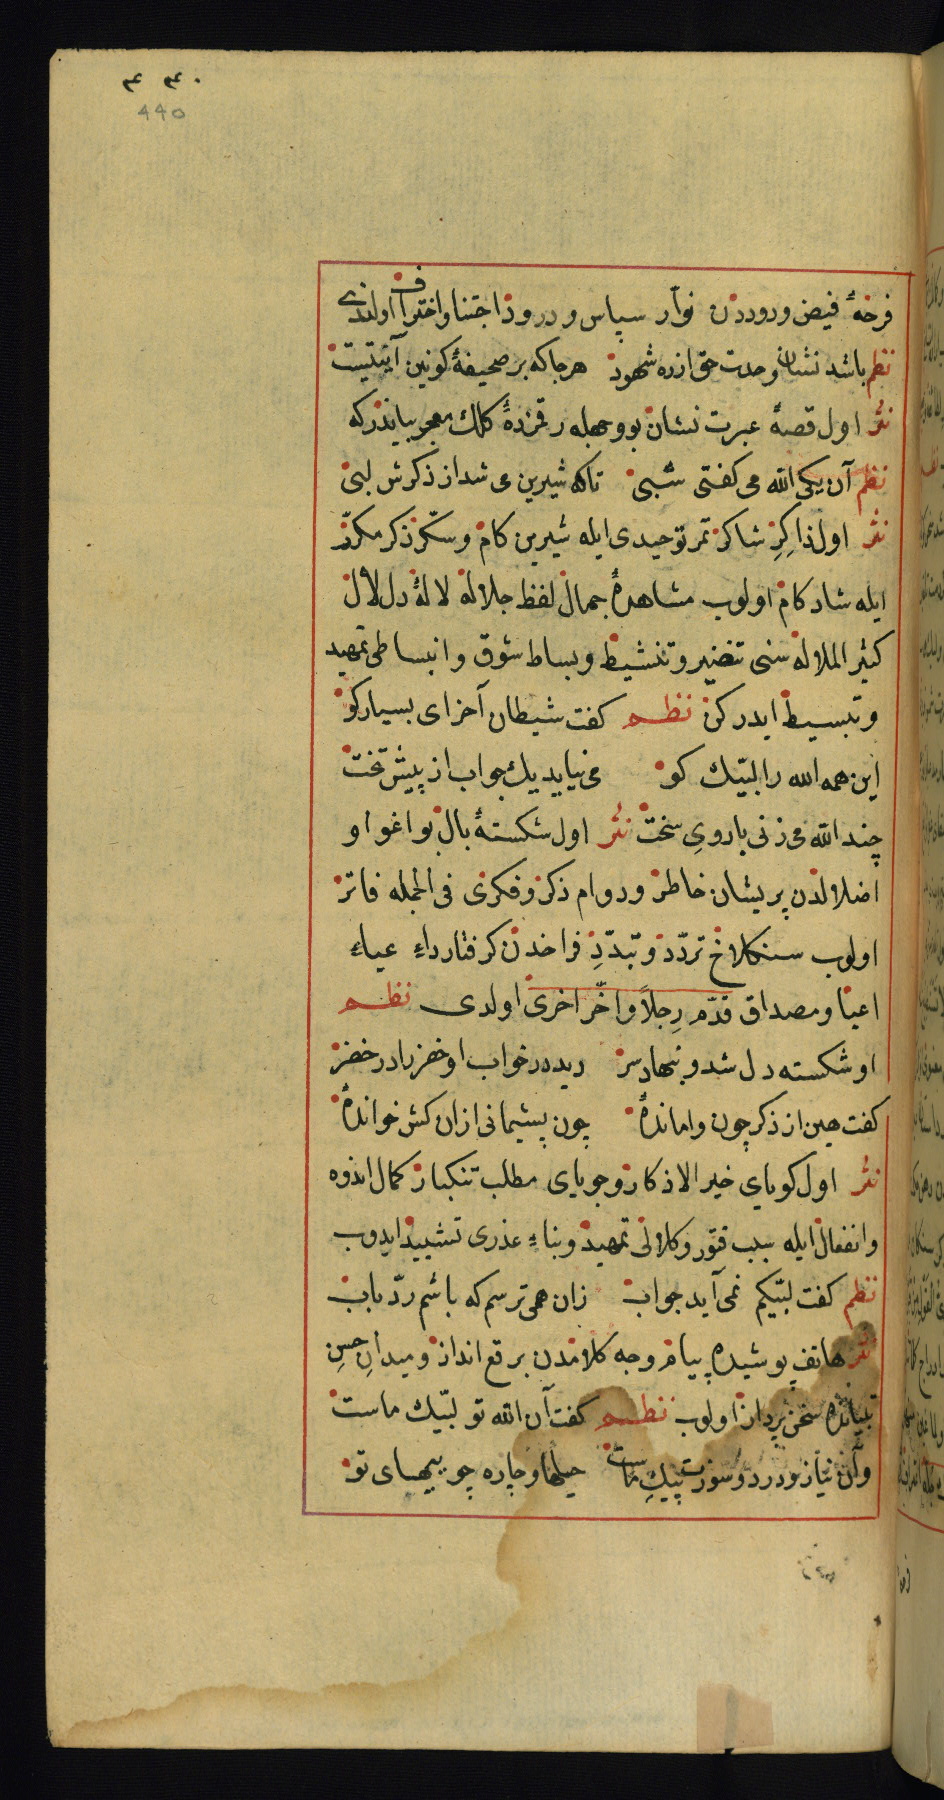 ٤٤٠
440
فرخهٔ فیض ورودندن نوآر سپاس ودرود اجتنا واختراف اولندی
نظم باشد نشان وحدت حق از ره شهود هر جا که بر صحیفهٔ کونین آیتیست
نثر اول قصهٔ عبرت نشان بو وجهله رقمزدهٔ کلك معجز بیاندرکه
نظم آن یکی الله می کفتی شبی تاکه شیرین می شد از ذکرش لبی
نثر اول ذاکر شاکر ثمر توحیدی ایله شیرین کام وسکر ذکر مکرر
ایله شاد کام اولوب مشاهدهٔ جمال لفظ جلاله لالهٔ دل لال
کثیر الملاله سنی تنضیر وتنشیط وبساط شوق وانبساطی تمهید
وتبسیط ایدرکن نظم کفت شیطان آخر ای بسیار کو
این همه الله را لبیك کو می نیاید یك جواب از پیش تخت
چند الله می زنی با روی سخت نثر اول شکستهٔ بال بو اغوا و
اضلالدن پریشان خاطر ودوام ذکر وفکری فی الجمله فاتر
اولوب سنکلاخ تردد وتبدد فراخدن کرفتار داء عیاء
اعیا ومصداق قدّم رِجلاً واخّر اخری اولدی نظم
او شکسته دل شد وبنهاد سر دید در خواب او خضر را در خضر
کفت هین از ذکر چون واماندهٔ چون پشیمانی ازان کش خواندهٔ
نثر اول کویای خیر الاذکار وجویای مطلب تنکبار کمال اندوه
وانفعال ایله سبب فتور وکلالنی تمهید وبناء عذری تشیید ایدوب
نظم کفت لبیکم نمی آید جواب زان همی ترسم که باشم ردّ باب
نثر هاتف پوشیده پیام وجه کلامندن برقع انداز ومیدان حسن
تبیانده سخن پرداز اولوب نظم کفت آن الله تو لبیك ماست
وآن نیاز ودرد وسوزت پیك ماست حیلها وچاره جوییهای تو